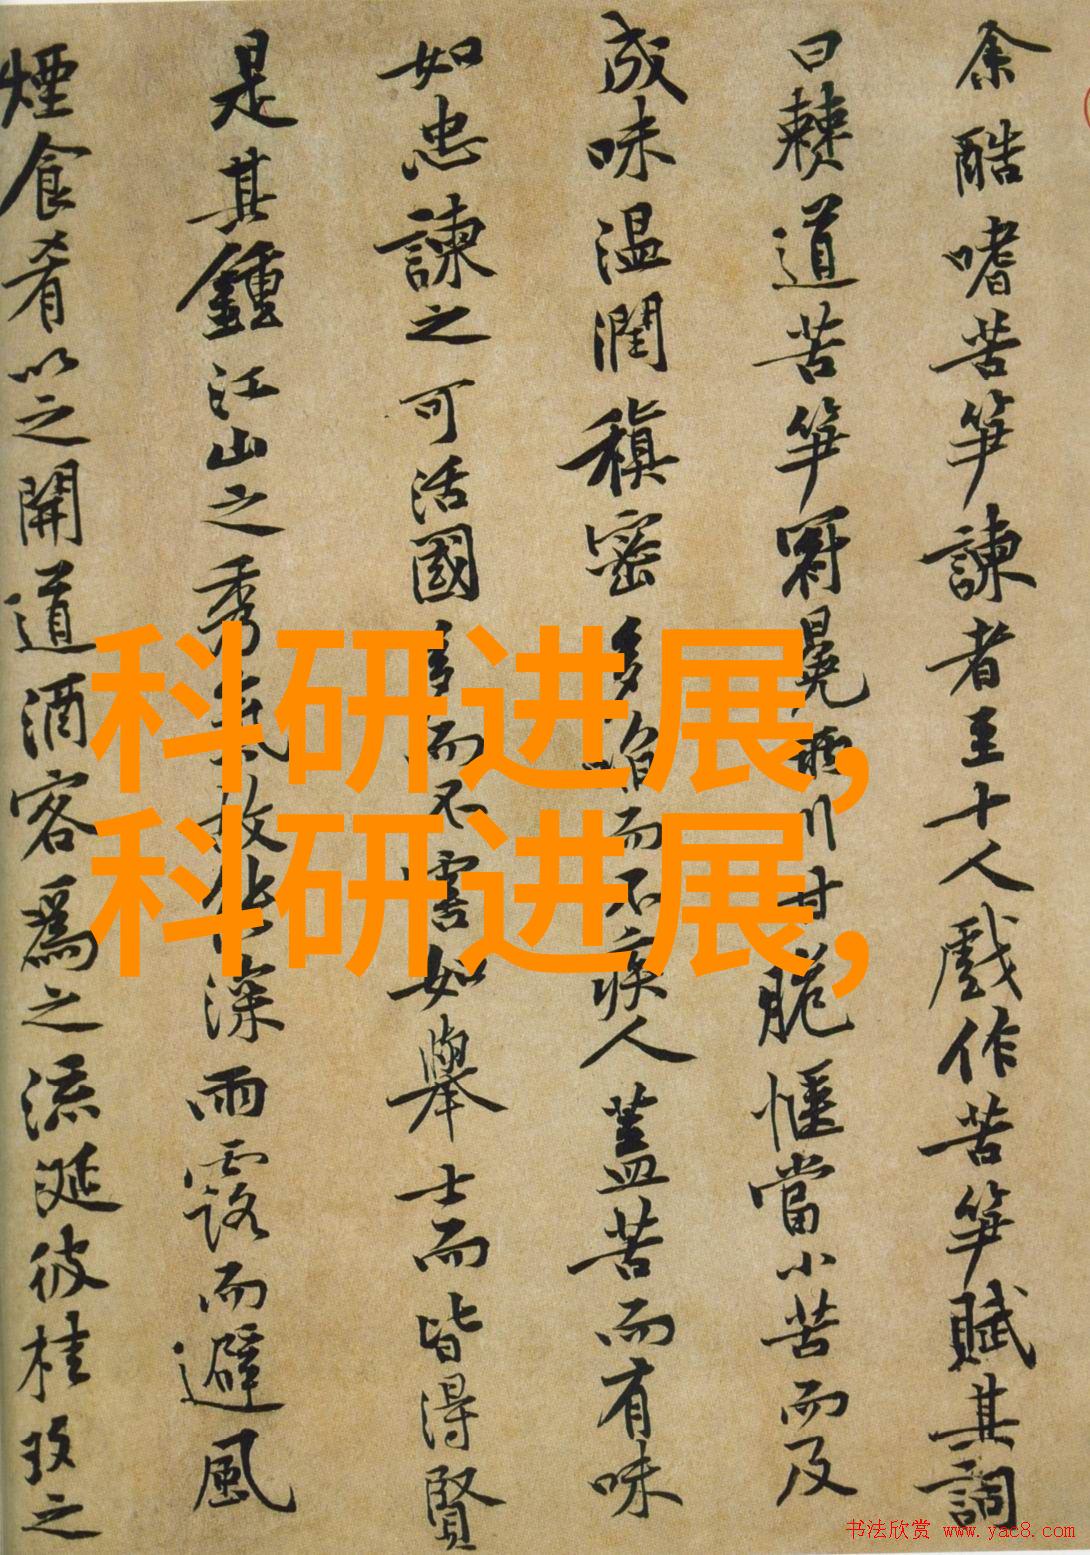 余酷嗜苦笋諫者至十人戲作苦笋賦其詞
曰僰道苦笋冠冕兩川甘脆愜當小苦而及
成味温潤稹密多啗而不疾人蓋苦而有味
如忠諫之可活國多而不害如舉士而皆得賢
是其鍾江山之秀氣故能深雨露而避風
煙食肴以之開道酒客爲之流涎彼桂玫之
科研进展,
科研进展,
书法欣赏 www.yac8.com